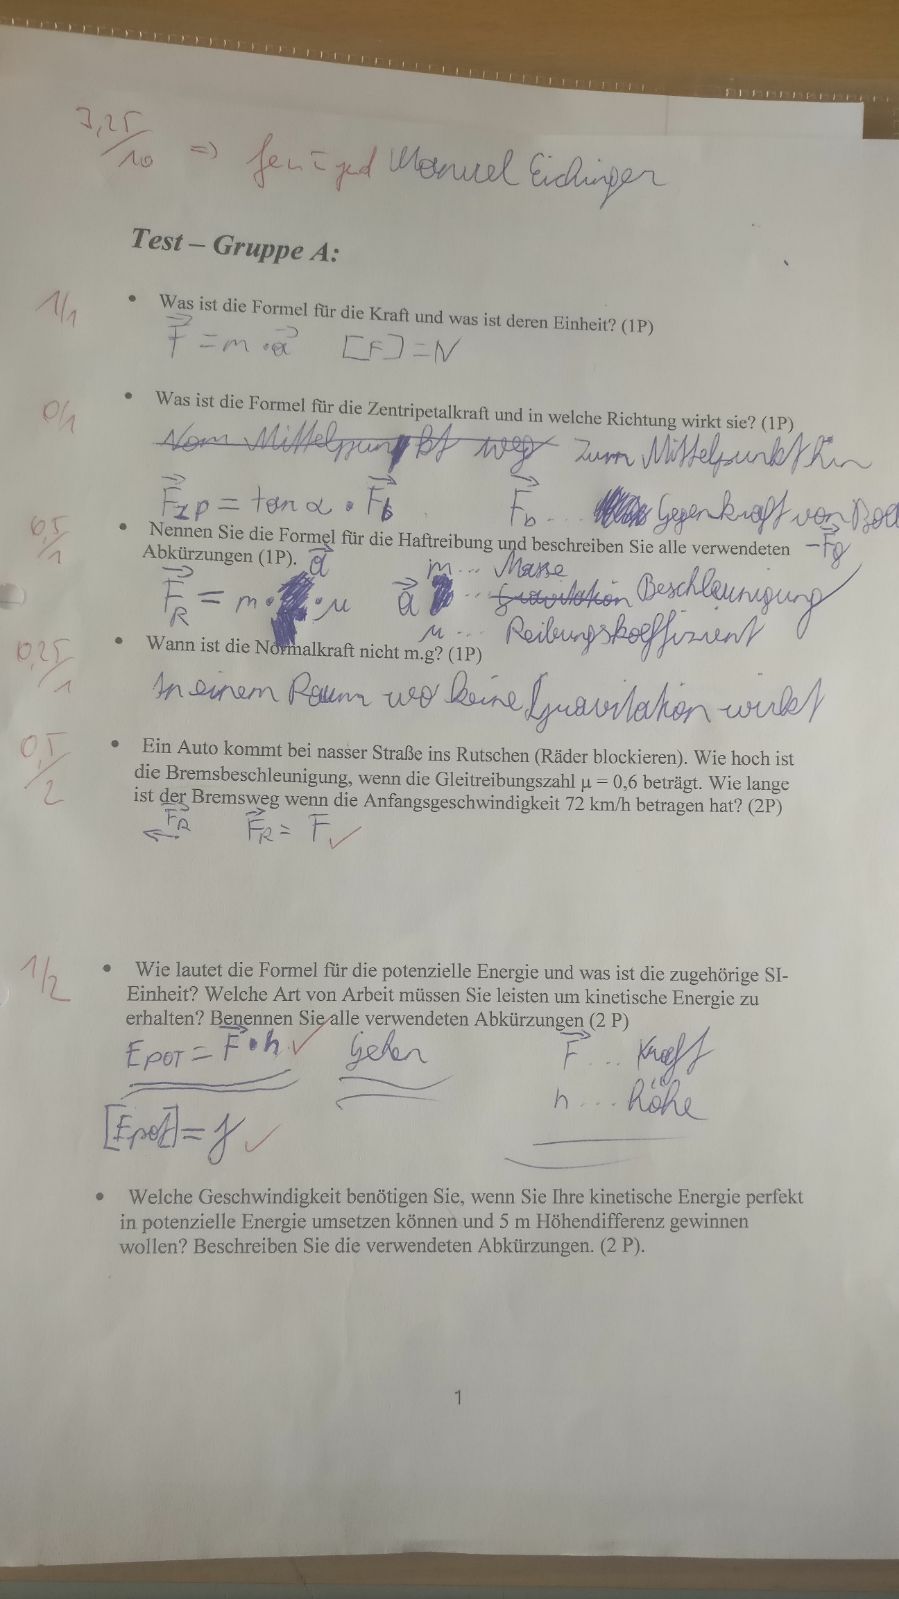 3,25/10 => Manuel Eichinger
Test – Gruppe A:
1/1
• Was ist die Formel für die Kraft und was ist deren Einheit? (1P)
F = m · a [F] = N
0/1
• Was ist die Formel für die Zentripetalkraft und in welche Richtung wirkt sie? (1P)
Vom Mittelpunkt weg zum Mittelpunkt hin
F_ZP = tan α · F_b F_b ... Gegenkraft von
0,5/1
• Nennen Sie die Formel für die Haftreibung und beschreiben Sie alle verwendeten -F_g
Abkürzungen (1P). a m ... Masse
F_R = m · · μ a ... Gravitation Beschleunigung
μ ... Reibungskoeffizient
0,25/1
• Wann ist die Normalkraft nicht m.g? (1P)
In einem Raum wo keine Gravitation wirkt
0,5/2
• Ein Auto kommt bei nasser Straße ins Rutschen (Räder blockieren). Wie hoch ist
die Bremsbeschleunigung, wenn die Gleitreibungszahl μ = 0,6 beträgt. Wie lange
ist der Bremsweg wenn die Anfangsgeschwindigkeit 72 km/h betragen hat? (2P)
F_R F_R = F ✓
1/2
• Wie lautet die Formel für die potenzielle Energie und was ist die zugehörige SI-
Einheit? Welche Art von Arbeit müssen Sie leisten um kinetische Energie zu
erhalten? Benennen Sie alle verwendeten Abkürzungen (2 P)
E_POT = F · h ✓ Gehen F ... Kraft
h ... höhe
[Epot] = J ✓
• Welche Geschwindigkeit benötigen Sie, wenn Sie Ihre kinetische Energie perfekt
in potenzielle Energie umsetzen können und 5 m Höhendifferenz gewinnen
wollen? Beschreiben Sie die verwendeten Abkürzungen. (2 P).
1